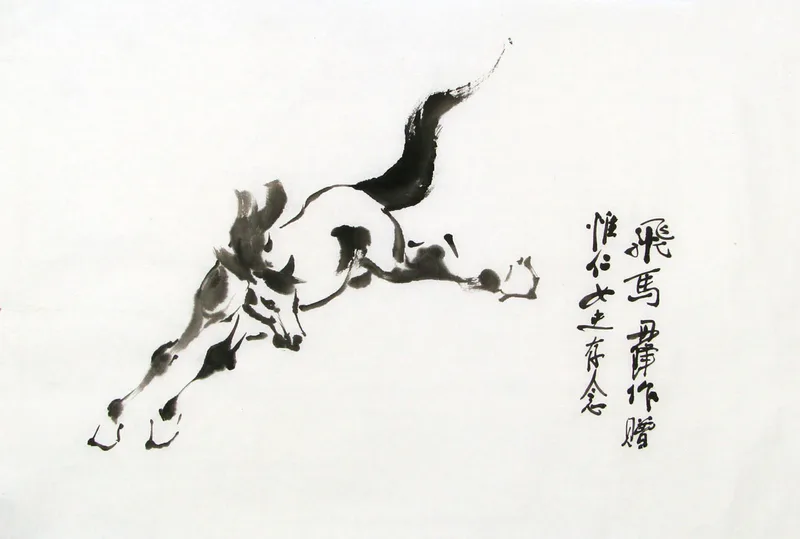 飛馬 丹萍作贈
惟仁女史存念